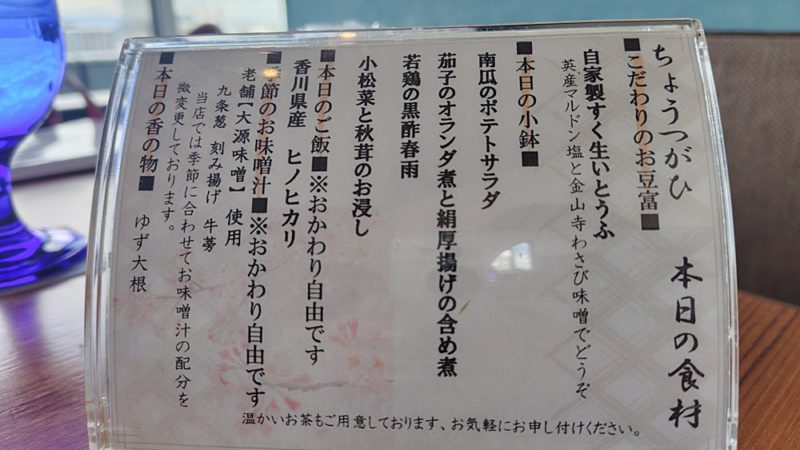 ちょうつがひ 本日の食材
■こだわりのお豆富■
自家製すく生いとうふ
英産マルドン塩と金山寺わさび味噌でどうぞ
■本日の小鉢■
南瓜のポテトサラダ
茄子のオランダ煮と絹厚揚げの含め煮
若鶏の黒酢春雨
小松菜と秋茸のお浸し
■本日のご飯■※おかわり自由です
香川県産 ヒノヒカリ
節のお味噌汁■※おかわり自由です
老舗【大源味噌】 使用
九条葱 刻み揚げ 牛蒡
当店では季節に合わせてお味噌汁の配分を
微変更しております。
■本日の香の物■ ゆず大根
温かいお茶もご用意しております、お気軽にお申し付けください。